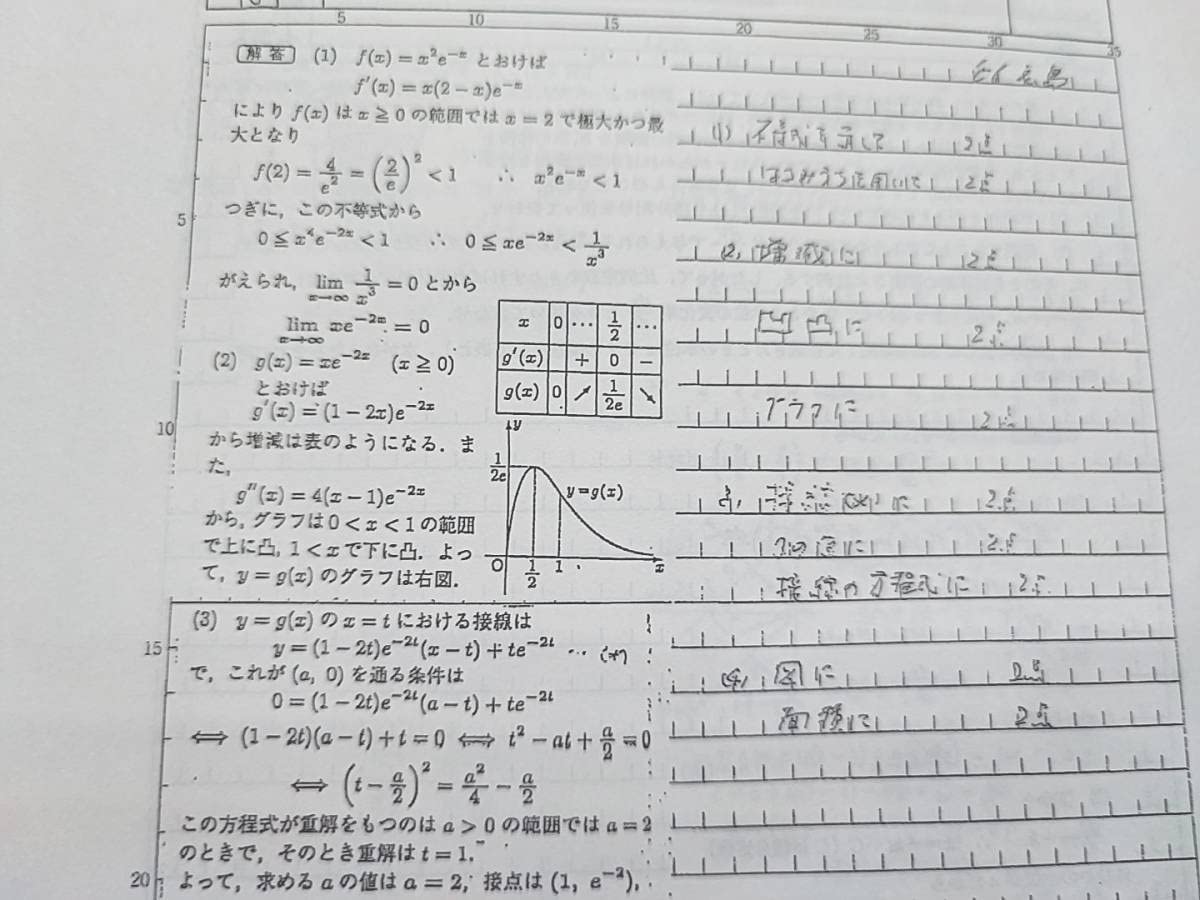 5 10 15 20 25 30 35
解答 (1) f(x)=x²e⁻ˣ とおけば
f'(x)=x(2-x)e⁻ˣ
により f(x) は x≧0 の範囲では x=2 で極大かつ最
大となり
f(2)=4/e²=(2/e)²<1 ∴ x²e⁻ˣ<1
5
つぎに,この不等式から
0≦x⁴e⁻²ˣ<1 ∴ 0≦xe⁻²ˣ<1/x³
がえられ, lim x→∞ 1/x³=0 とから
lim x→∞ xe⁻²ˣ=0
(2) g(x)=xe⁻²ˣ (x≧0)
とおけば
g'(x)=(1-2x)e⁻²ˣ
10
から増減は表のようになる.ま
た,
g''(x)=4(x-1)e⁻²ˣ
から,グラフは0<x<1の範囲
で上に凸,1<xで下に凸.よっ
て,y=g(x)のグラフは右図.
x 0 … 1/2 …
g'(x) + 0 -
g(x) 0 ↗ 1/2e ↘
y
1/2e
y=g(x)
O 1/2 1 x
(3) y=g(x) の x=t における接線は
15
y=(1-2t)e⁻²ᵗ(x-t)+te⁻²ᵗ … (*)
で,これが (a, 0) を通る条件は
0=(1-2t)e⁻²ᵗ(a-t)+te⁻²ᵗ
⟺ (1-2t)(a-t)+t=0 ⟺ t²-at+a/2=0
⟺ (t-a/2)²=a²/4-a/2
この方程式が重解をもつのは a>0 の範囲では a=2
のときで,そのとき重解は t=1.
20
よって,求める a の値は a=2, 接点は (1, e⁻²),
(1) 不等式を示して 2点
はさみうちを用いて 2点
(2) 増減に 2点
凹凸に 2点
グラフに 2点
(3) 2点
aの値に 2点
接線の方程式に 2点
(4) 図に 2点
面積に 2点